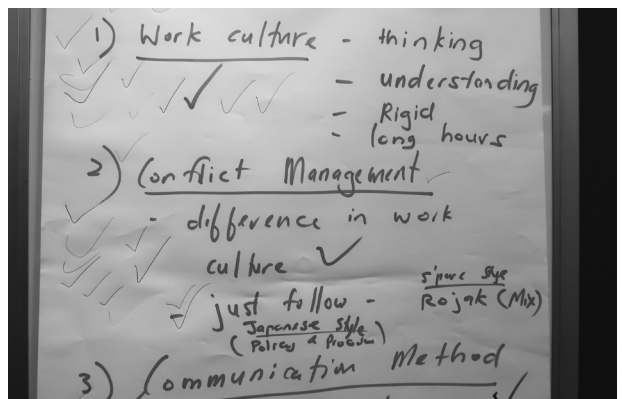 1) Work culture - thinking
- understanding
- Rigid
- long hours
2) Conflict Management
- difference in work
culture
- just follow -
S'pore style
Rojak (Mix)
Japanese style
(Policy &
3) Communication Method